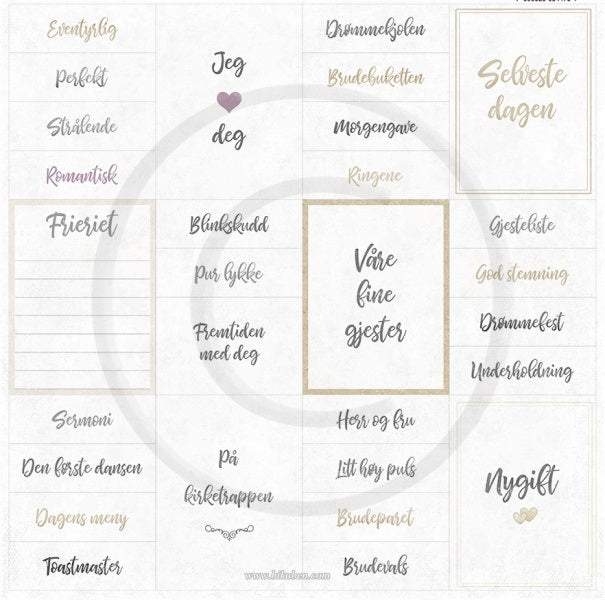 Eventyrlig
Perfekt
Strålende
Romantisk
Jeg
deg
Drømmekjolen
Brudebuketten
Morgengave
Ringene
Selveste
dagen
Frieriet
Blinkskudd
Pur lykke
Fremtiden
med deg
Våre
fine
gjester
Gjesteliste
God stemning
Drømmefest
Underholdning
Sermoni
Den første dansen
Dagens meny
Toastmaster
På
kirketrappen
Herr og fru
Litt høy puls
Brudeparet
Brudevals
Nygift
©
www.bikuben.com